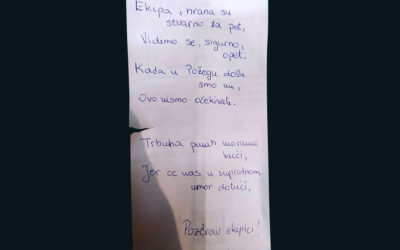 Ekipa, hrana su
stvarno za pet,
Vidimo se, sigurno,
opet.
Kada u Požegu došli
smo mi,
Ovo nismo očekivali.
Trbuha punih moramo
kući,
Jer će nas u suprotnom
umor dotući.
Pozdrav ekipici!